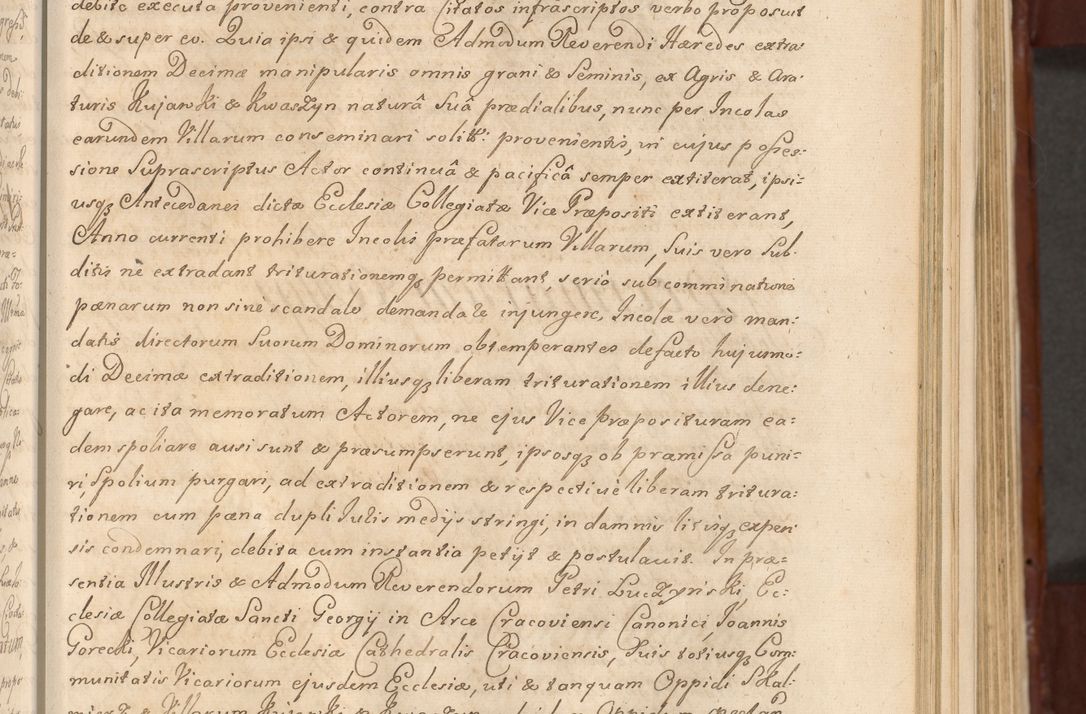 debite executa provenienti, contra Citatos infrascriptos verbo proposuit
de & super eo. Quia ipsi & quidem Admodum Reverendi Hæredes extra
ditionem Decimæ manipularis omnis grani & Seminis, ex Agris & Ara:
turis Kujawki & Kwaszyn naturâ Suâ prædialibus, nunc per Incolas
earundem Villarum conseminari solitt: provenientis, in cujus posses:
sione Suprascriptus Actor continuâ & pacificâ semper extiterat, ipsi:
usq3 Antecedanei dictæ Ecclesiæ Collegiatæ Vice Præpositi extiterant,
Anno currenti prohibere Incolis præfatarum Villarum, Suis vero Sub:
ditis ne extradant triturationemq3 permittant, serio sub comminatione
pænarum non sine scandalo demandate injungere, Incolæ verò man:
datis directorum Suorum Dominorum obtemperantes defacto hujusmo:
di Decimæ extraditionem, illiusq3 liberam triturationem illius dene:
gare, ac ita memoratum Actorem, ne ejus Vice Præposituram ea:
dem spoliare ausi sunt & præsumpserunt, ipsosq3 ob præmissa puni:
ri, Spolium purgari, ad extraditionem & respective liberam tritura:
tionem cum pæna dupli Iulis medijs stringi, in damnis litisq3 expen
sis condemnari, debita cum instantia petijt & postulavit. In præ:
sentia Illustris & Admodum Reverendorum Petri Łuczyński, Ec:
clesiæ Collegiatæ Sancti Georgij in Arce Cracoviensi Canonici, Ioannis
Gorecki, Vicariorum Ecclesiæ Cathedralis Cracoviensis, Suis totiusq3 Com:
munitatis Vicariorum ejusdem Ecclesiæ, uti & tanquam Oppidi Skal: